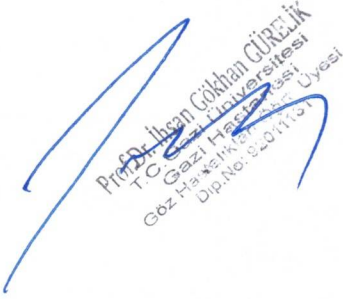 Prof.Dr. İhsan Gökhan GÜRELİK
T.C. Gazi Üniversitesi
Gazi Hastanesi
Göz Üyesi
Dip.No: